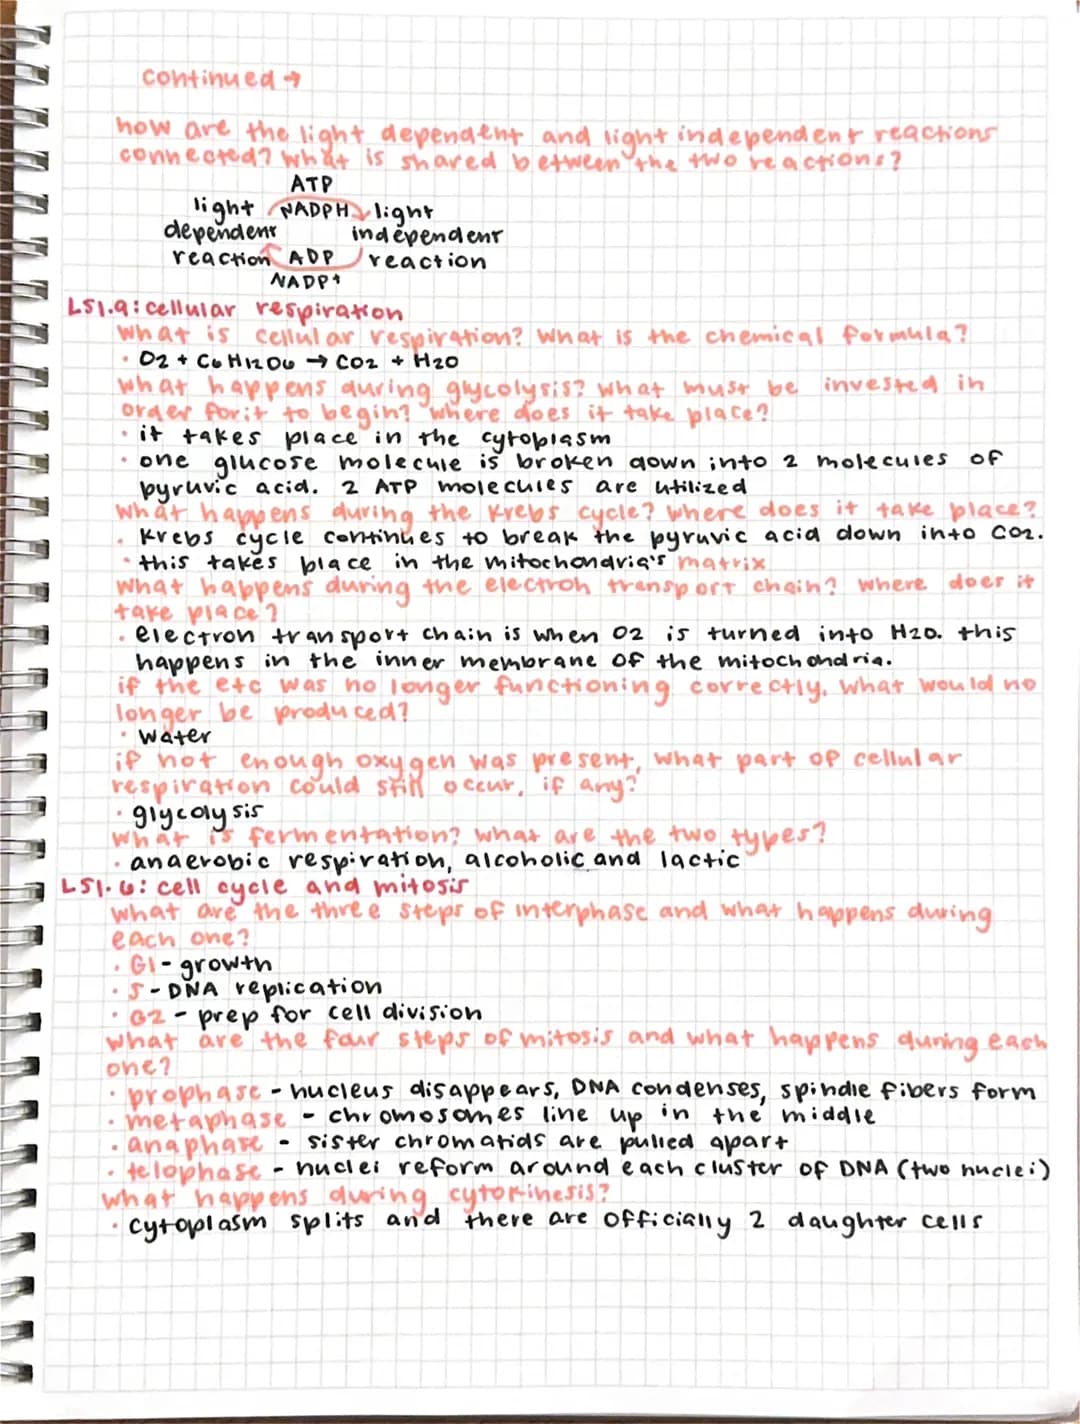 continued →
how are the light dependent and light independent reactions
connected? what is shared between the two reactions?
ATP
light NADPH light
dependent independent
reaction ADP reaction
NADP+
LS1.9: cellular respiration
what is cellular respiration? what is the chemical formula?
• O2 + C6H12O6 → CO2 + H2O
what happens during glycolysis? what must be invested in
order for it to begin? where does it take place?
• it takes place in the cytoplasm
• one glucose molecule is broken down into 2 molecules of
pyruvic acid. 2 ATP molecules are utilized
what happens during the Krebs cycle? where does it take place?
• Krebs cycle continues to break the pyruvic acid down into CO2.
• this takes place in the mitochondria's matrix
what happens during the electron transport chain? where does it
take place?
• electron transport chain is when O2 is turned into H2O. this
happens in the inner membrane of the mitochondria.
if the etc was no longer functioning correctly, what would no
longer be produced?
• water
if not enough oxygen was present, what part of cellular
respiration could still occur, if any?
• glycolysis
what is fermentation? what are the two types?
• anaerobic respiration, alcoholic and lactic
LS1.6: cell cycle and mitosis
what are the three steps of interphase and what happens during
each one?
• G1 - growth
• S - DNA replication
• G2 - prep for cell division
what are the four steps of mitosis and what happens during each
one?
• prophase - nucleus disappears, DNA condenses, spindle fibers form
• metaphase - chromosomes line up in the middle
• anaphase - sister chromatids are pulled apart
• telophase - nuclei reform around each cluster of DNA (two nuclei)
what happens during cytokinesis?
• cytoplasm splits and there are officially 2 daughter cells